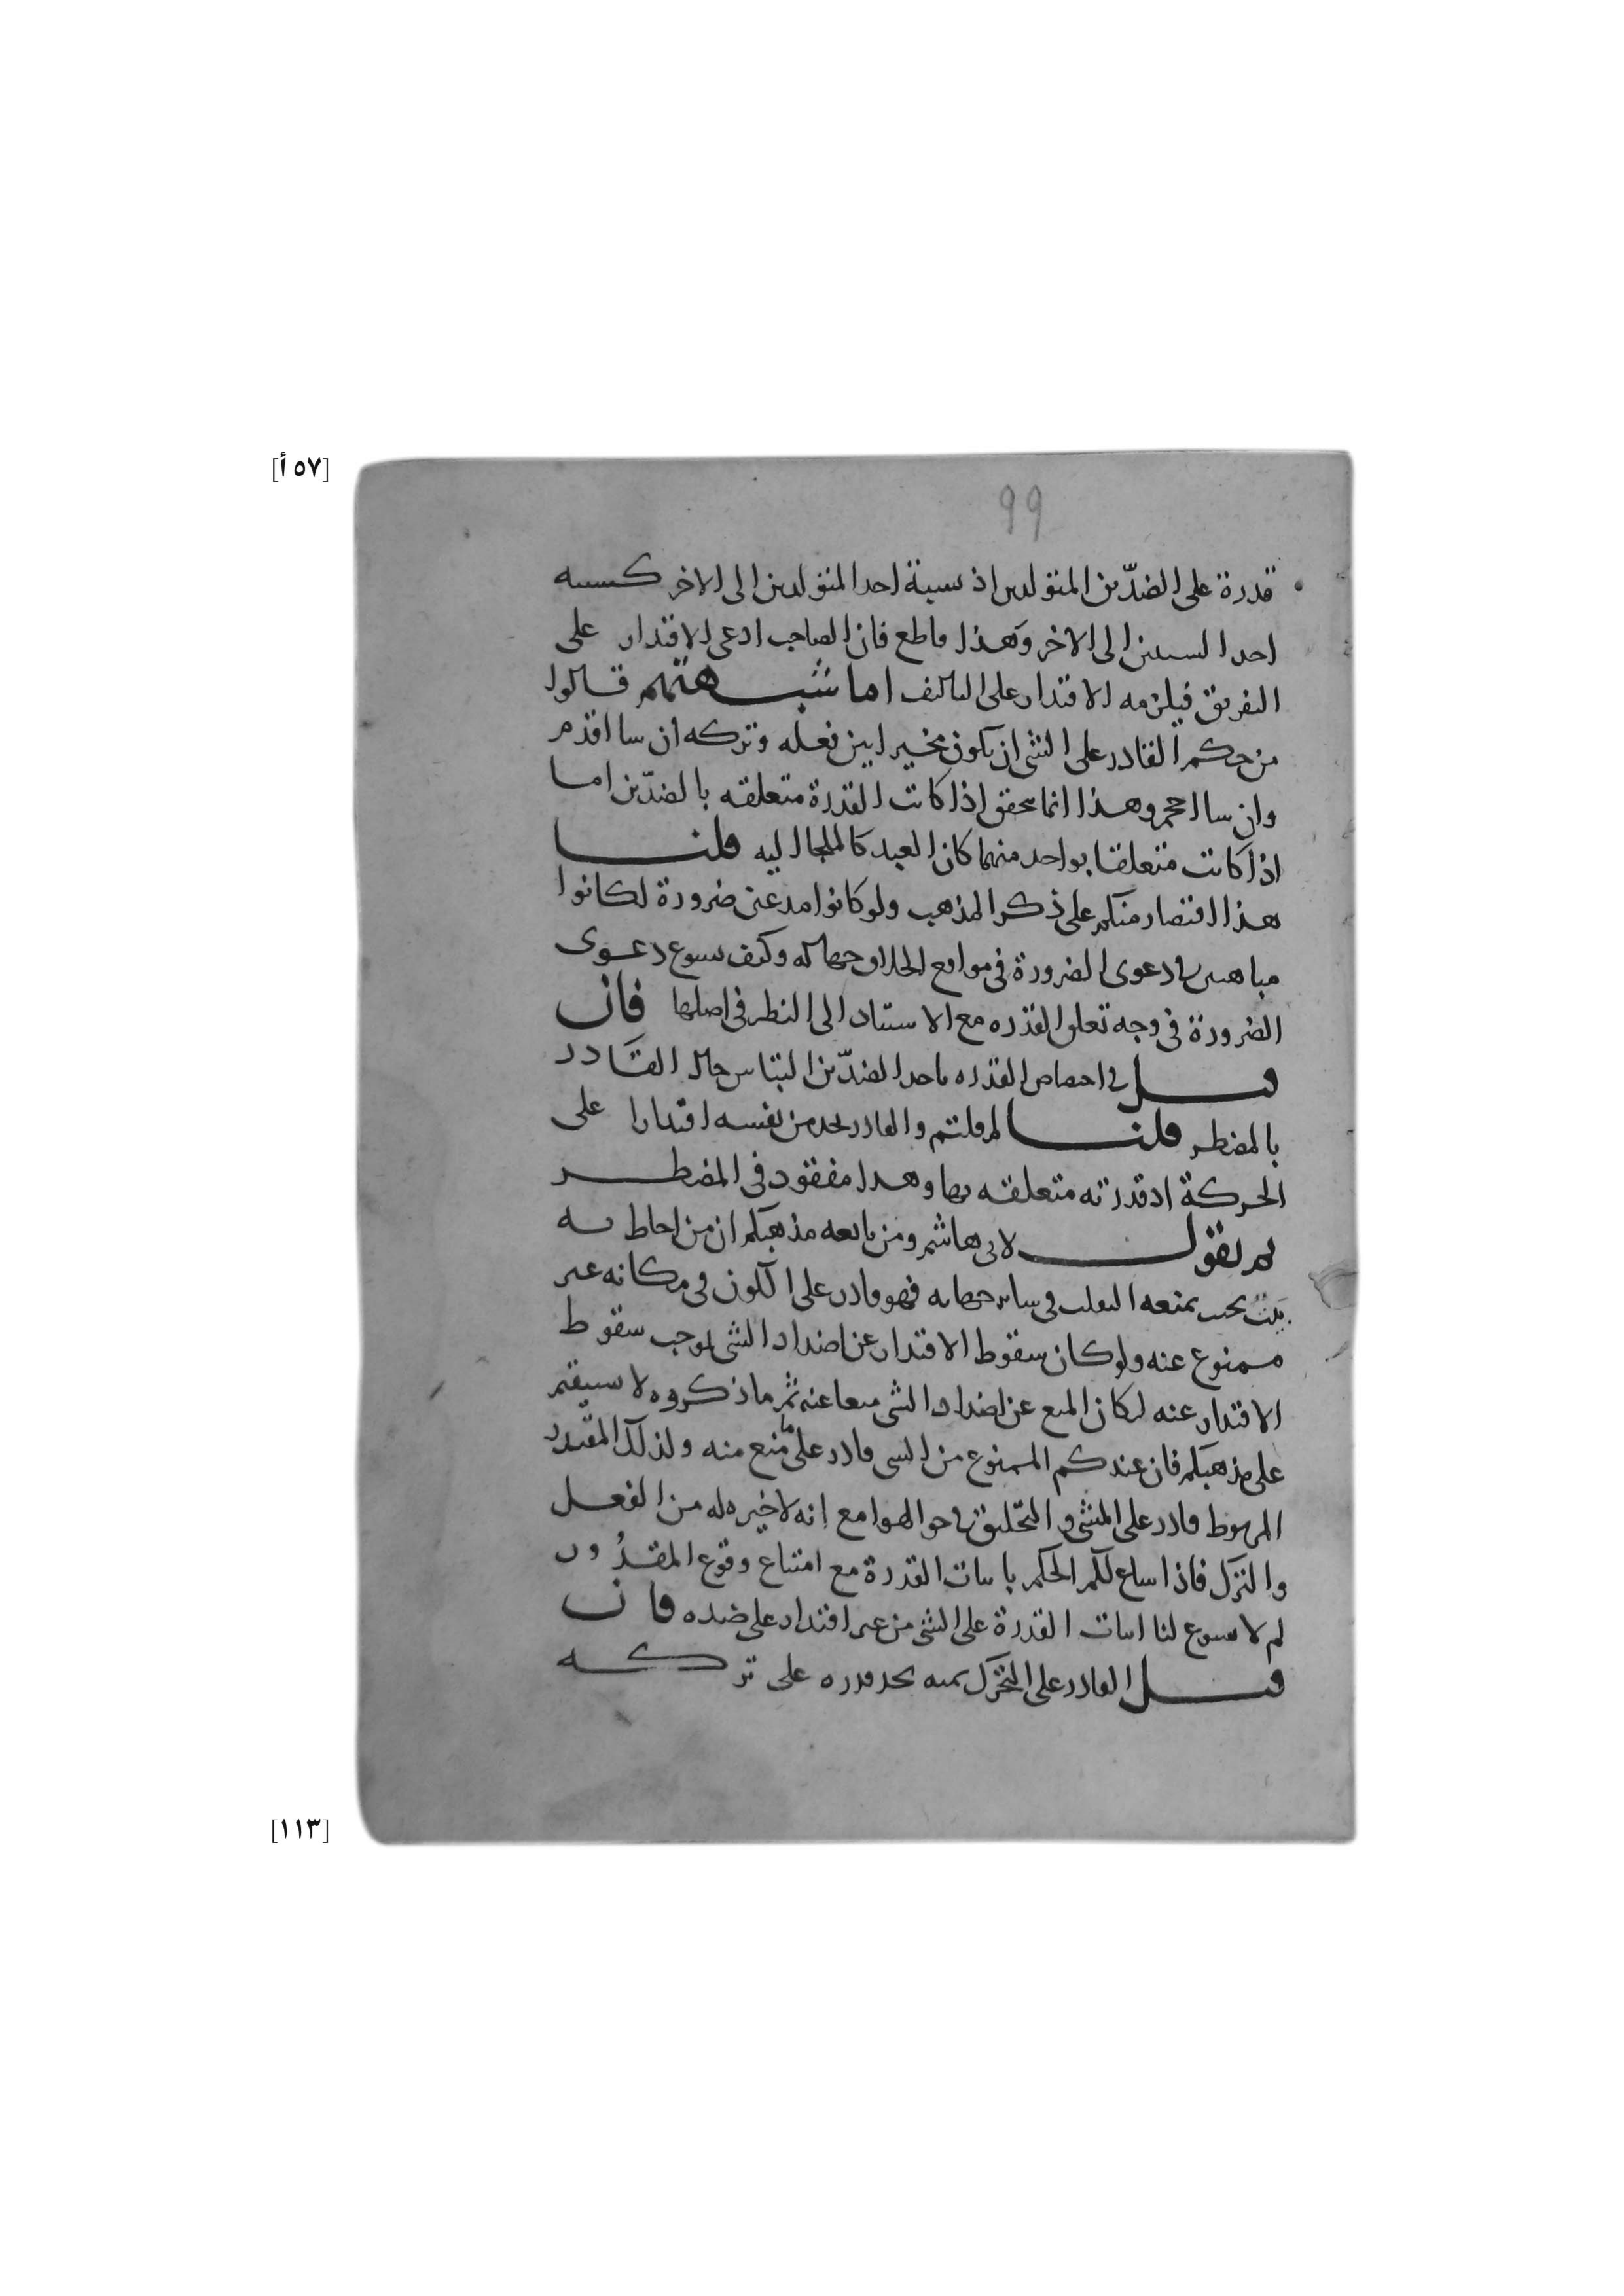 [٥٧ أ]
99
قدرة على الضدّين المتولدين اذ نسبة احد المتولدين الى الاخر كنسبه
احد السببين الى الاخر وهذا قاطع فان الصاحب ادعى الاقتدار على
التفريق فيلزمه الاقتدار على التاليف اما شبهتهم قالوا
من حكم القادر على الشى ان يكون مخيرا بين فعله وتركه ان شا اقدم
وان شا احجم وهذا انما يتحقق اذا كانت القدرة متعلقه بالضدّين اما
اذا كانت متعلقا بواحد منهما كان العبد كالملجا اليه قلنا
هذا اقتصار منكم على ذكر المذهب ولو كانوا مدعين ضرورة لكانوا
مباهتين دعوى الضرورة فى مواقع وكيف يسوغ دعوى
الضرورة فى وجه تعلق القدره مع الاستناد الى النظر فى اصلها فان
قيل فى اختصاص القدره باحد الضدّين التباس حال القادر
بالمضطر قلنا لم قلتم والقادر يجد من نفسه اقتدارا على
الحركة اذ قدرته متعلقه بها وهذا مفقود فى المضطر
ثم نقول لابى هاشم ومن تابعه مذهبكم ان من احاط به
بيت بحيث يمنعه التقلب فى ساير جهاته فهو قادر على الكون فى مكانه غير
ممنوع عنه ولو كان سقوط الاقتدار عن اضداد الشى يوجب سقوط
الاقتدار عنه لكان المنع عن اضداد الشى منعا عنه ثم ما ذكروه لا يستقيم
على مذهبكم فان عندكم الممنوع من الشى قادر على ما منع منه ولذلك المقيد
المربوط قادر على المشى و التحليق فى جو الهوا مع انه لا خيره له من الفعل
والترك فاذا ساغ لكم الحكم باثبات القدرة مع امتناع وقوع المقدور
لم لا يسوغ لنا اثبات القدرة على الشى من غير اقتدار على ضده فان
قيل القادر على التحرك يمنه يجد قدره على تركه
[١١٣]